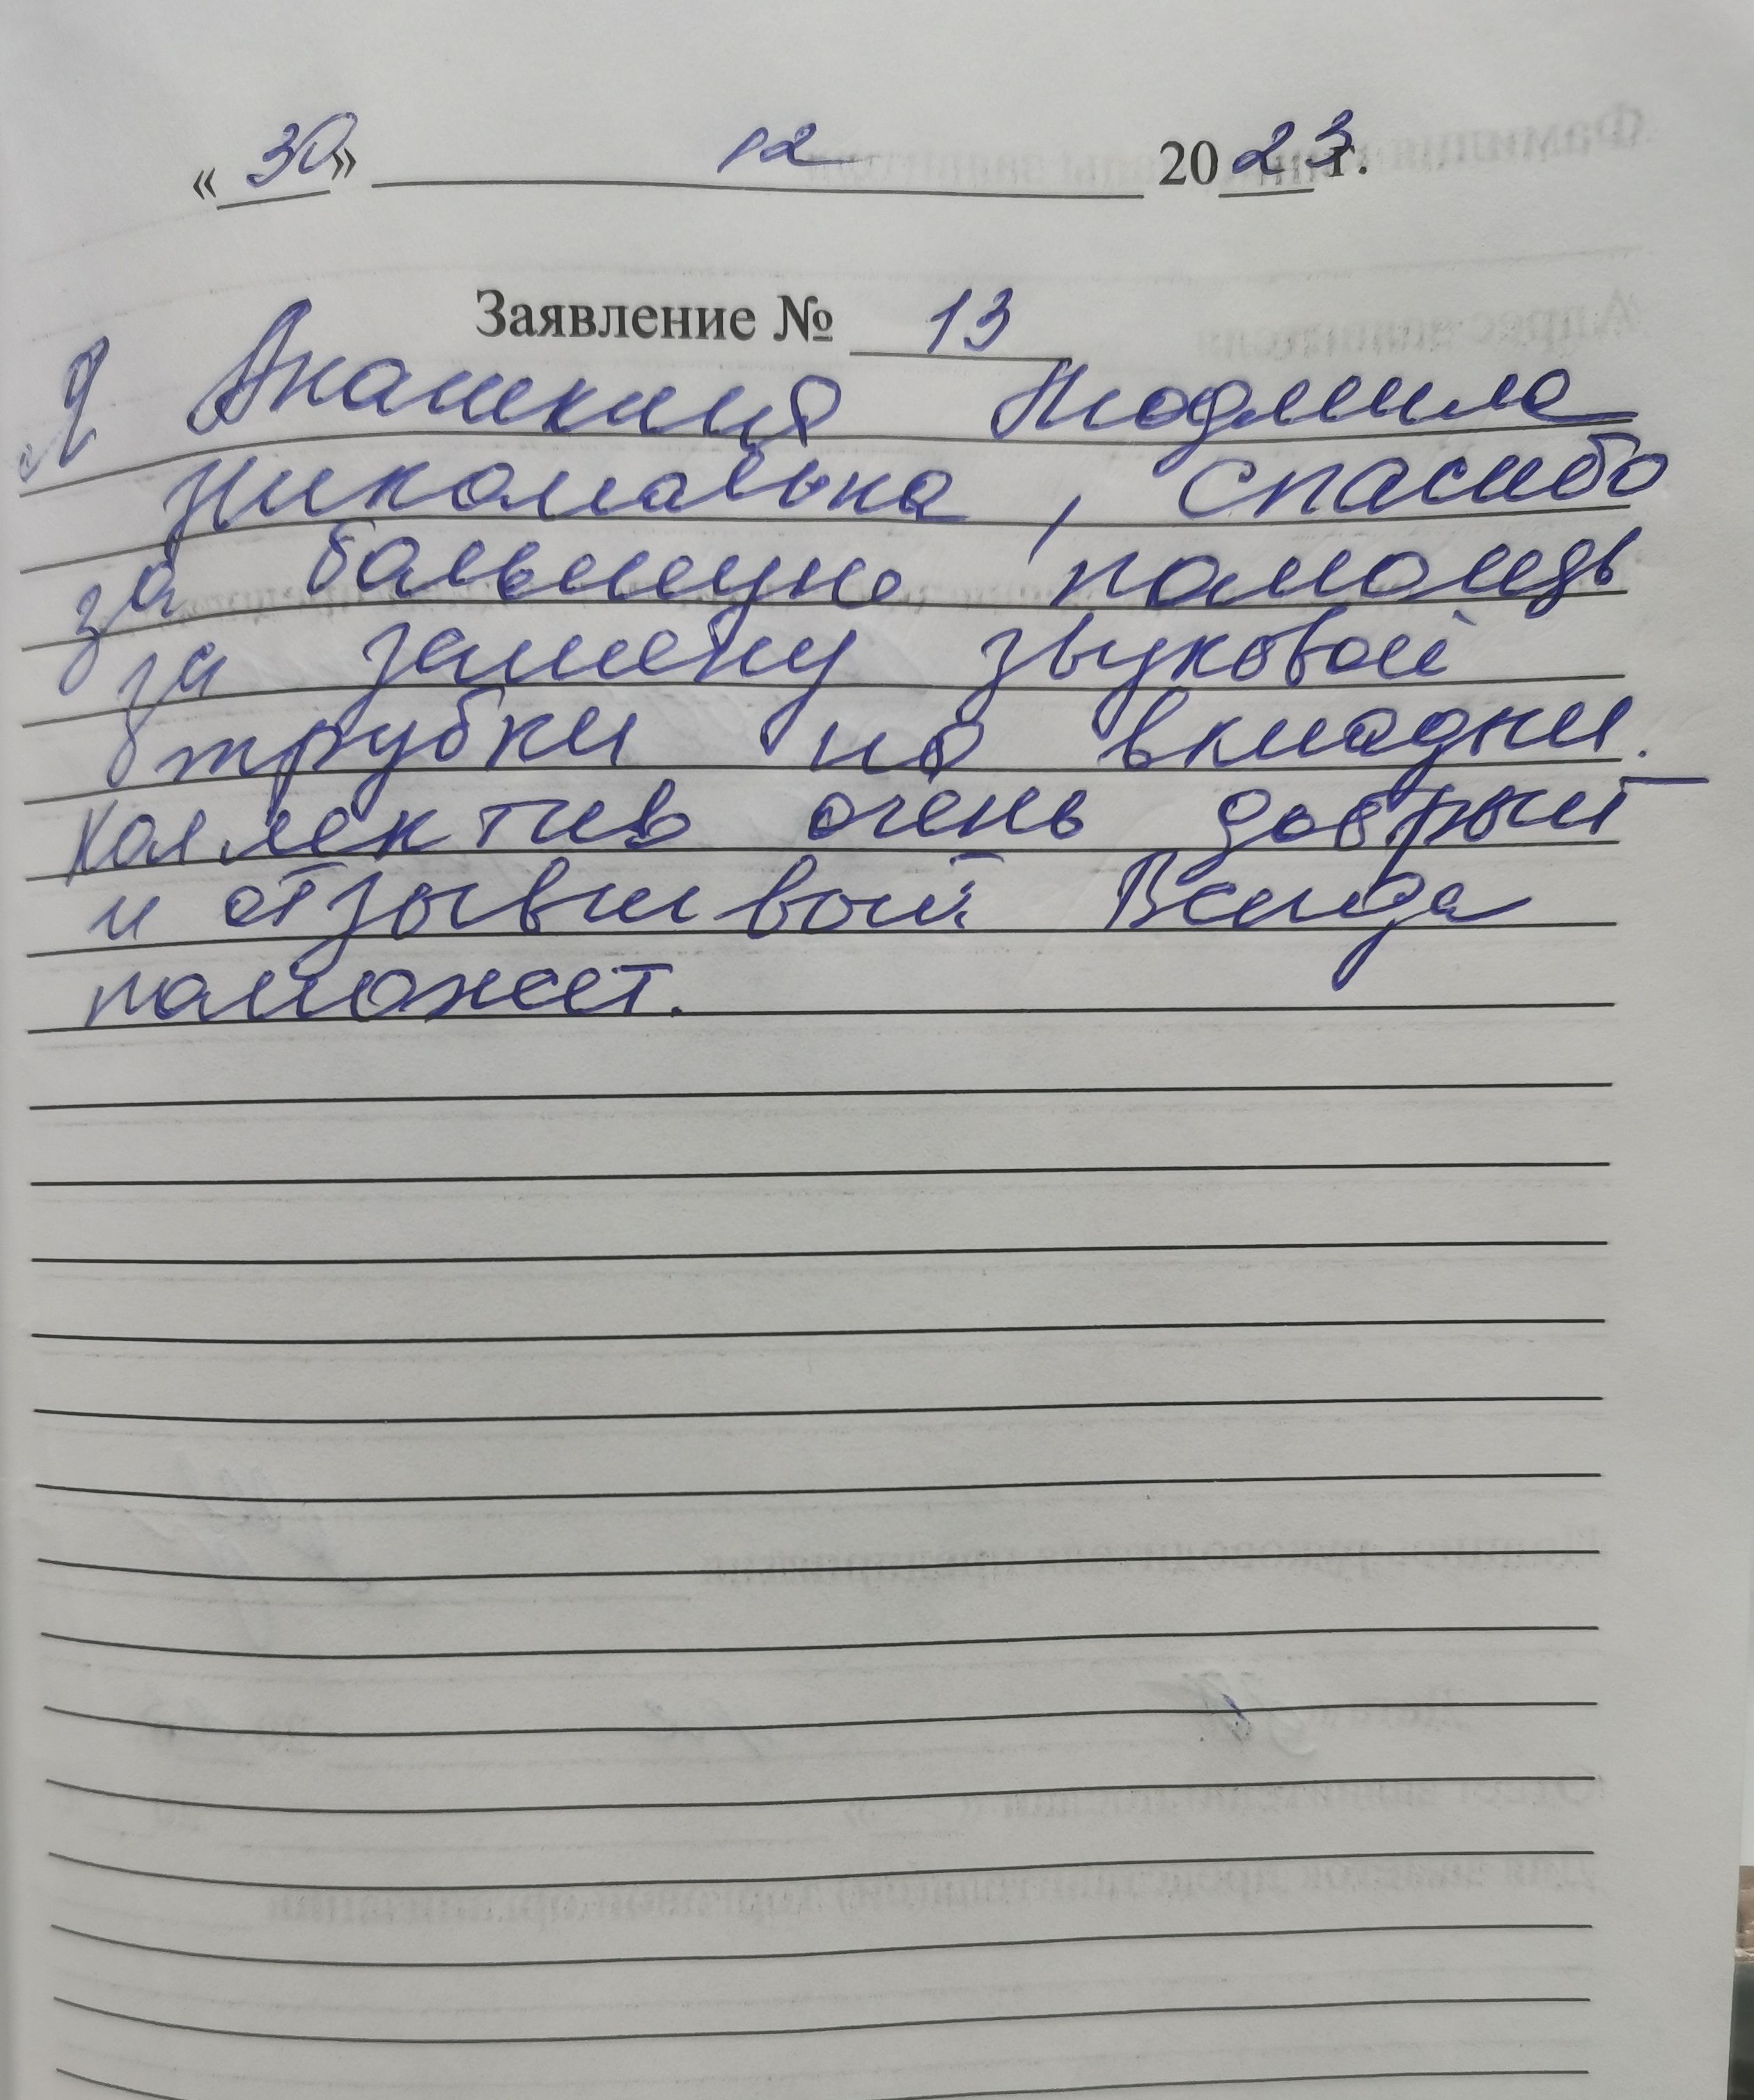 « 30 » 12 2023 г.
Заявление № 13
Я Анашкина Людмила
Николаевна, спасибо
за большую помощь
за замену звуковой
трубки на вкладки.
Коллектив очень добрый
и отзывчивой Всегда
поможет.